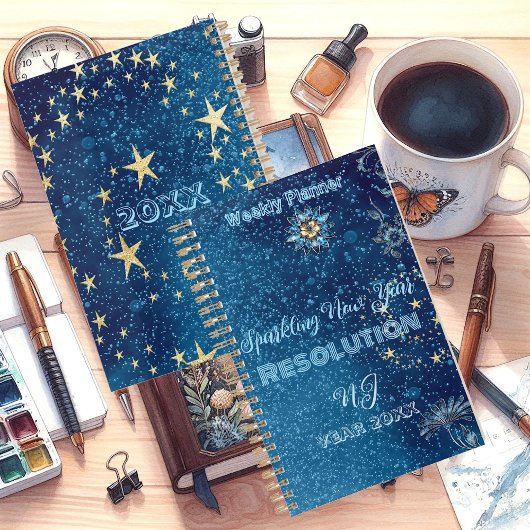 20XX
20XX
Weekly Planner
Sparkling New Year
RESOLUTION
NJ
YEAR 20XX